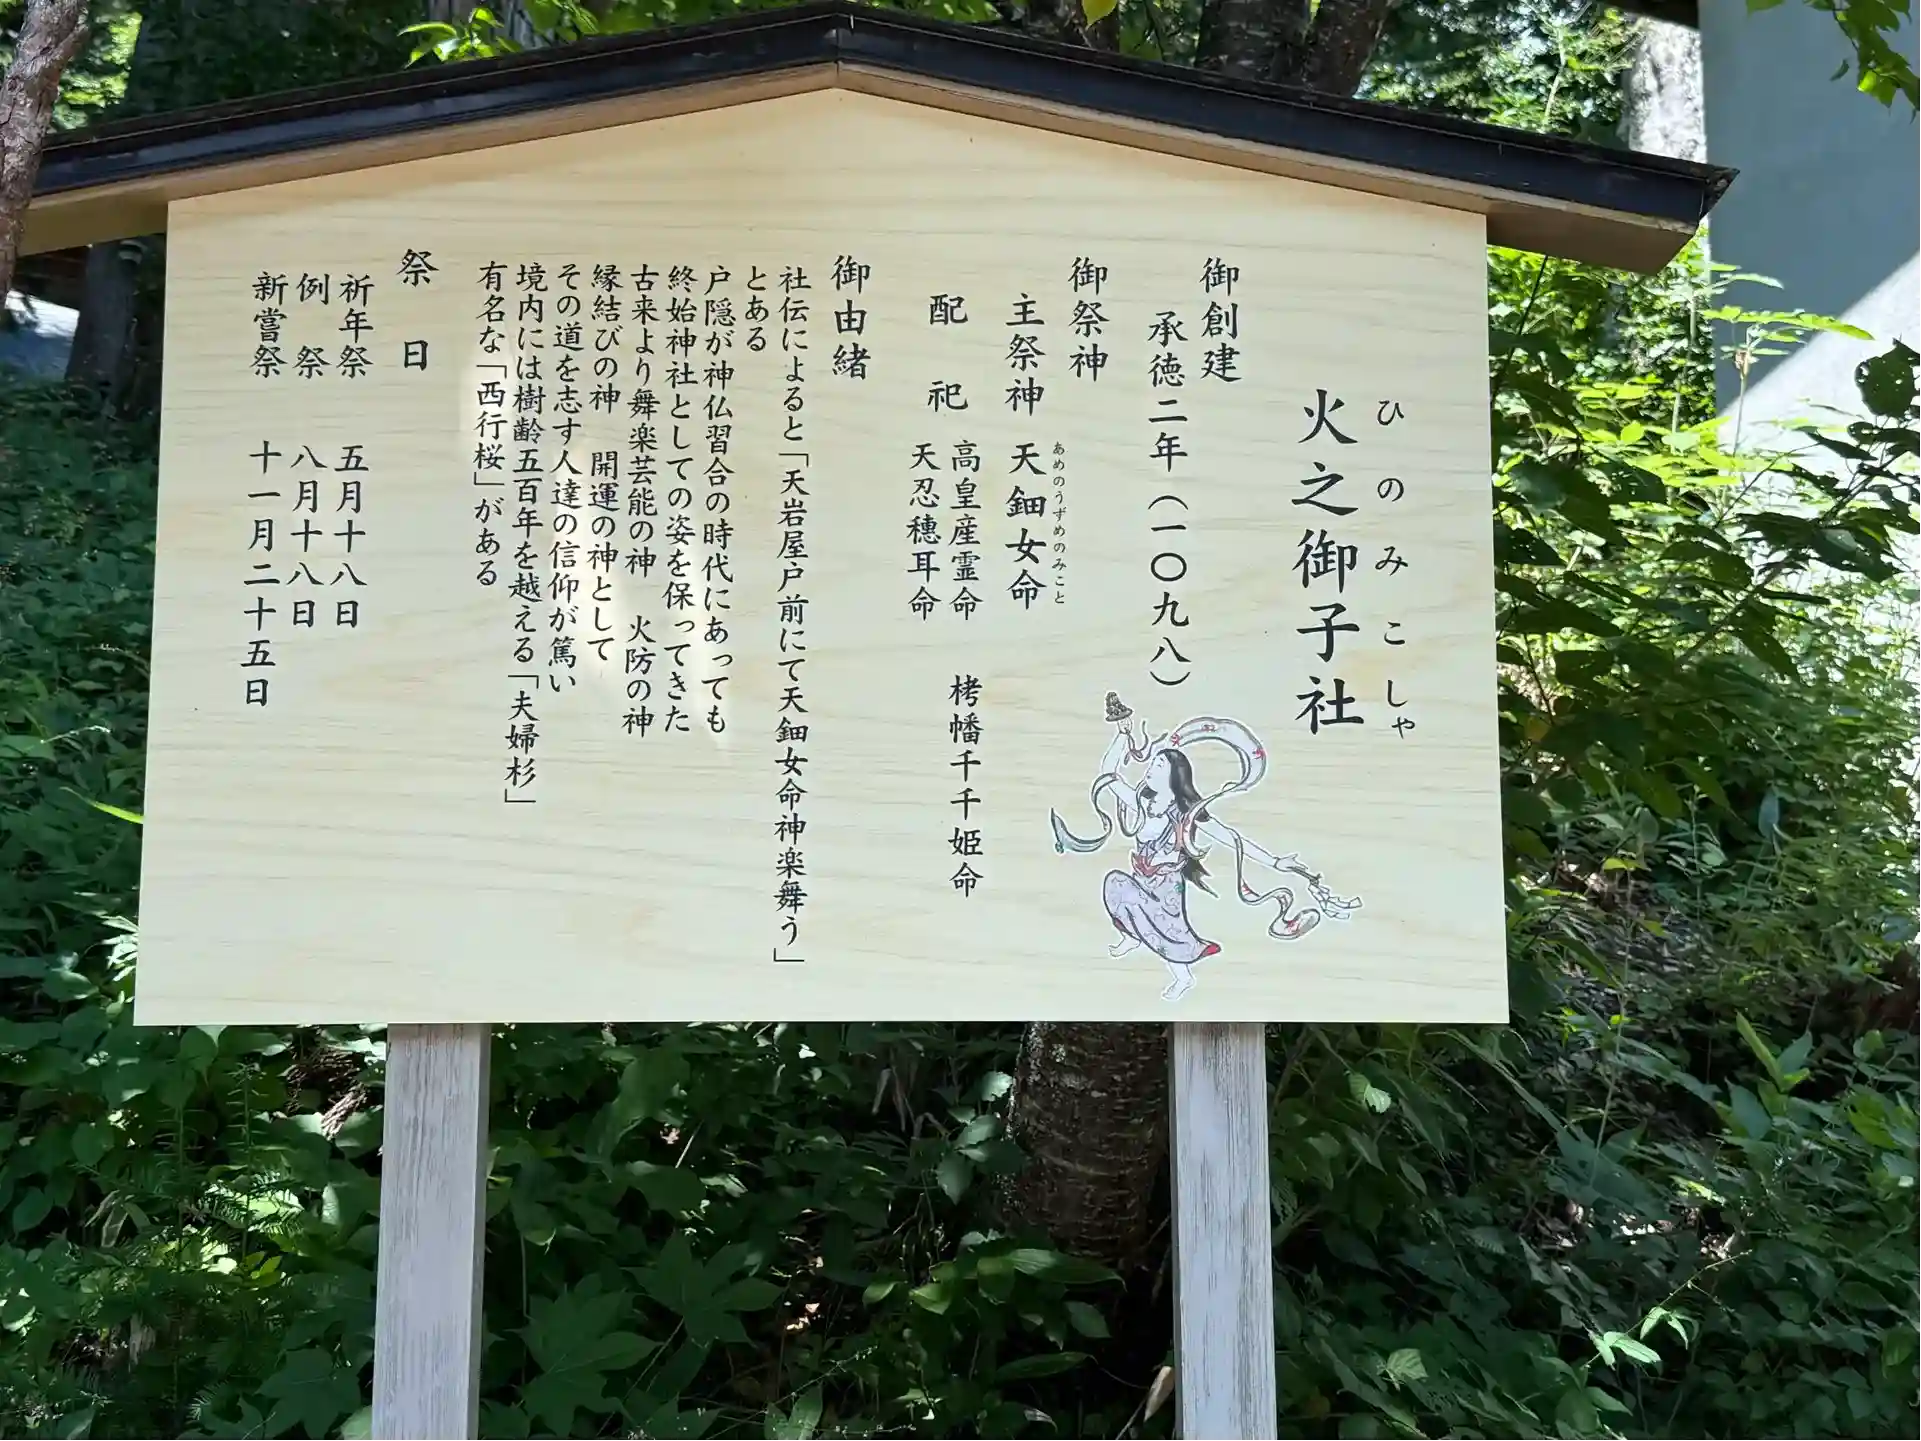 ひのみこしゃ
火之御子社
御創建
承徳二年（一〇九八）
御祭神
主祭神 天鈿女命
あめのうずめのみこと
配祀 高皇産霊命 栲幡千千姫命
天忍穂耳命
御由緒
社伝によると「天岩屋戸前にて天鈿女命神楽舞う」
とある
戸隠が神仏習合の時代にあっても
終始神社としての姿を保ってきた
古来より舞楽芸能の神 火防の神
縁結びの神 開運の神として
その道を志す人達の信仰が篤い
境内には樹齢五百年を越える「夫婦杉」
有名な「西行桜」がある
祭日
祈年祭 五月十八日
例祭 八月十八日
新嘗祭 十一月二十五日